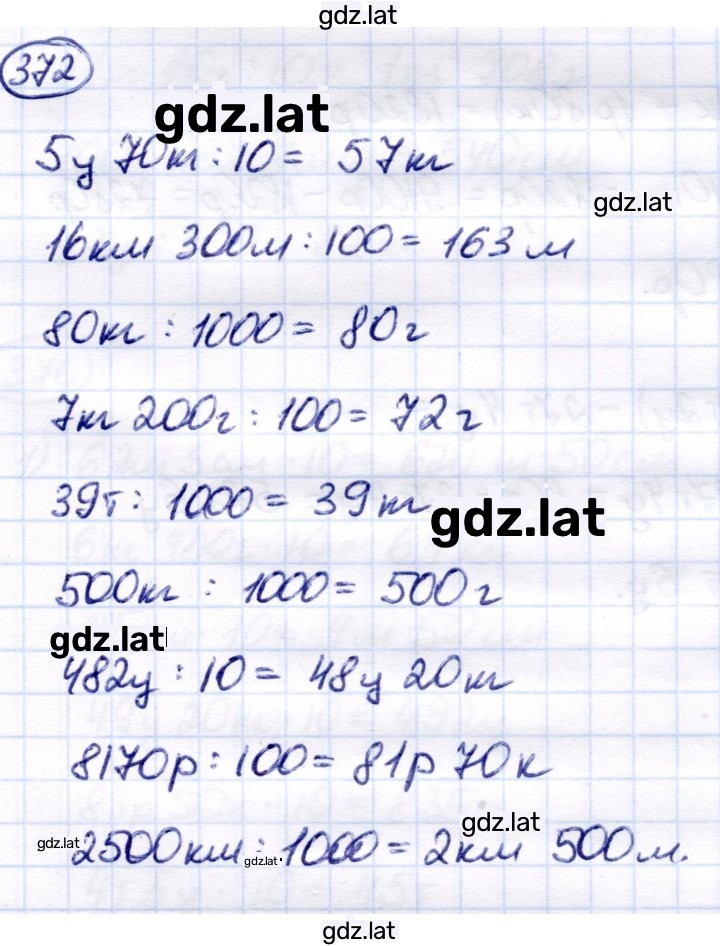 gdz.lat
372
gdz.lat
5ц 70кг : 10 = 57кг
gdz.lat
16км 300м : 100 = 163 м
80кг : 1000 = 80г
7кг 200г : 100 = 72г
39т : 1000 = 39кг
gdz.lat
500кг : 1000 = 500г
gdz.lat
482ц : 10 = 48ц 20кг
8170р : 100 = 81р 70к
gdz.lat
gdz.lat 2500км : 1000 = 2км 500м.
gdz.lat
gdz.lat